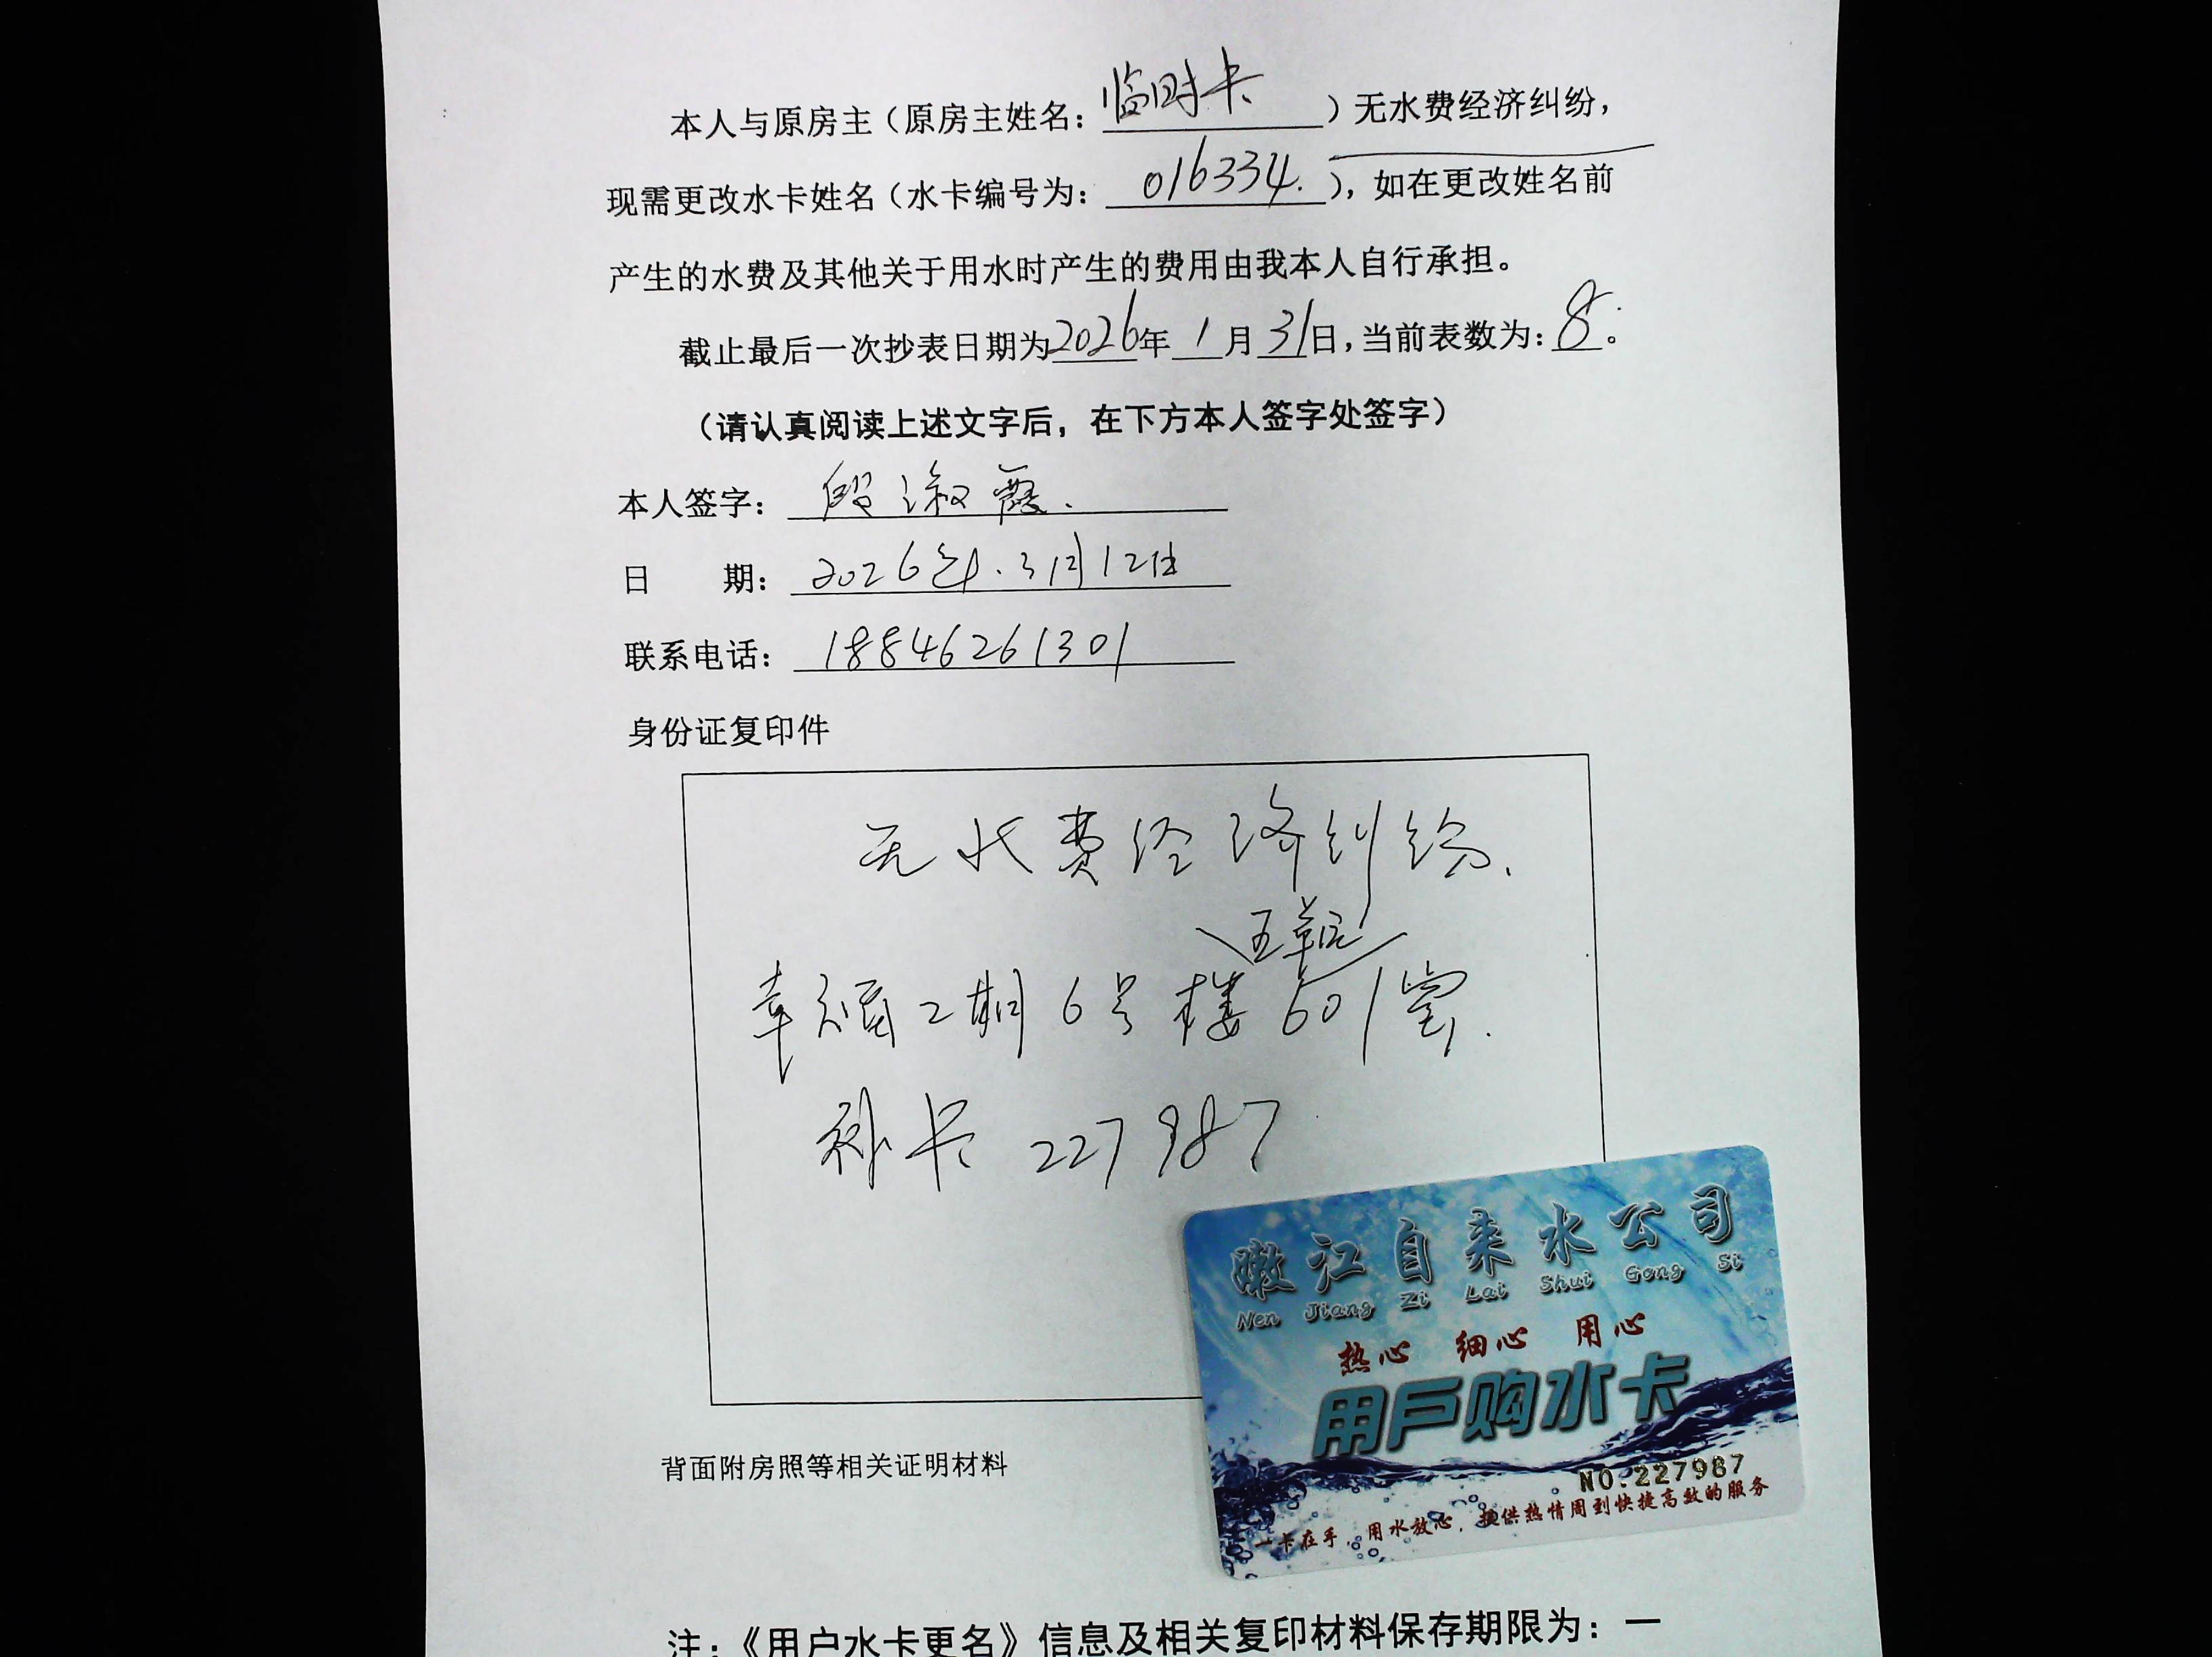 本人与原房主（原房主姓名：临时卡）无水费经济纠纷，
现需更改水卡姓名（水卡编号为：016334.），如在更改姓名前
产生的水费及其他关于用水时产生的费用由我本人自行承担。
截止最后一次抄表日期为2026年1月31日，当前表数为：8。
（请认真阅读上述文字后，在下方本人签字处签字）
本人签字：殷淑霞.
日 期：2026年.3月12日
联系电话：18846261301
身份证复印件
无水费经济纠纷.
五单元
幸福2期6号楼601室.
补卡 227987
嫩江自来水公司
Nen Jiang Zi Lai Shui Gong Si
热心 细心 用心
用户购水卡
NO.227987
一卡在手，用水放心，提供热情周到快捷高效的服务
背面附房照等相关证明材料
注：《用户水卡更名》信息及相关复印材料保存期限为：一